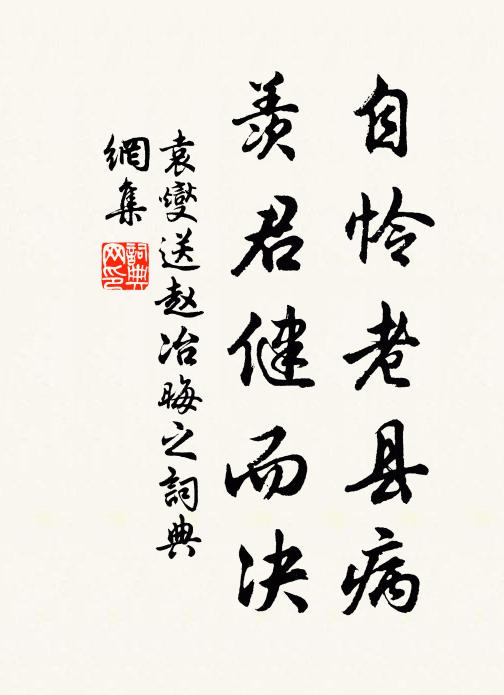 自怜老县病
羡君健而决
袁燮送赵冶晦之詞典
網集
詞典网印